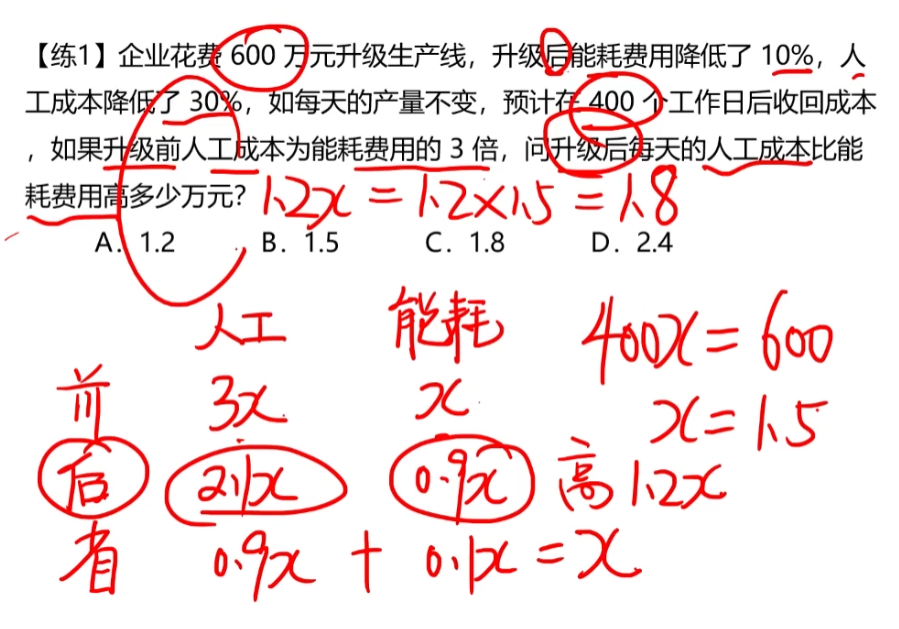 【练1】企业花费 600 万元升级生产线，升级后能耗费用降低了 10%，人
工成本降低了 30%，如每天的产量不变，预计在 400 个工作日后收回成本
，如果升级前人工成本为能耗费用的 3 倍，问升级后每天的人工成本比能
耗费用高多少万元？
1.2x = 1.2×1.5 = 1.8
A. 1.2 B. 1.5 C. 1.8 D. 2.4
人工 能耗 400x = 600
前 3x x x = 1.5
后 2.1x 0.9x 高 1.2x
省 0.9x + 0.1x = x